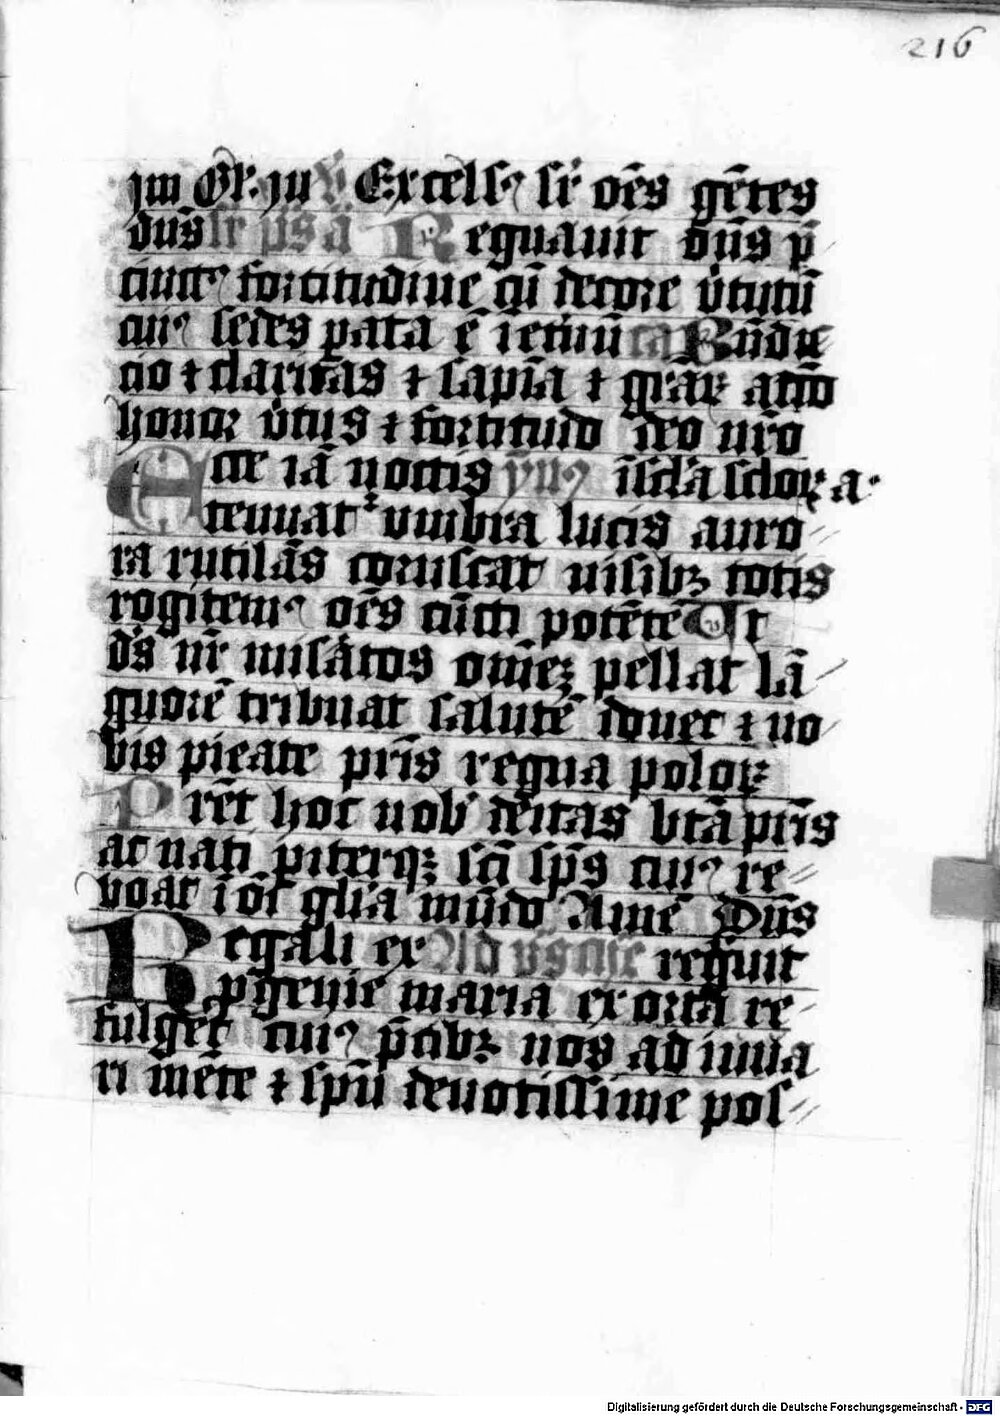 216
jm Gl'. ju V Excelsꝰ sr̄ oēs gētes
dūs sr̄ ps ā Regnauit dn̄s p̄
cinctꝰ fortitudine cū decore v̓tutū
cuiꝰ sedes ꝑata ē ī etnū ca Bn̄dic
cio ⁊ claritas ⁊ sapīa ⁊ gr̄aꝝ actio
honor v̓tus ⁊ fortitudo deo nr̄o
Ecce iā noctis ymꝰ
tenuatꝰ vmbra lucis auro
ra rutilās coruscat nisibꝫ totis
rogitemꝰ oēs cūcti potētē Vt
ds̄ nr̄ misātos omēꝫ pellat lā
guorē tribuat salutē donet ⁊ no
bis pietate pr̄is regna poloꝝ
Pr̄et hoc nob̓ deitas btā pr̄is
ac nati piterqꝫ sc̄i sp̄s cuiꝰ re
boat ī oī gl̓ia mūdo Amē Dn̄s
Regali ex Ad regnuit
ꝓgenie maria exorta re
fulget cuiꝰ p̄cibꝫ nos adiuua
ri mēte ⁊ spū deuotissime pos
Digitalisierung gefördert durch die Deutsche Forschungsgemeinschaft - DFG